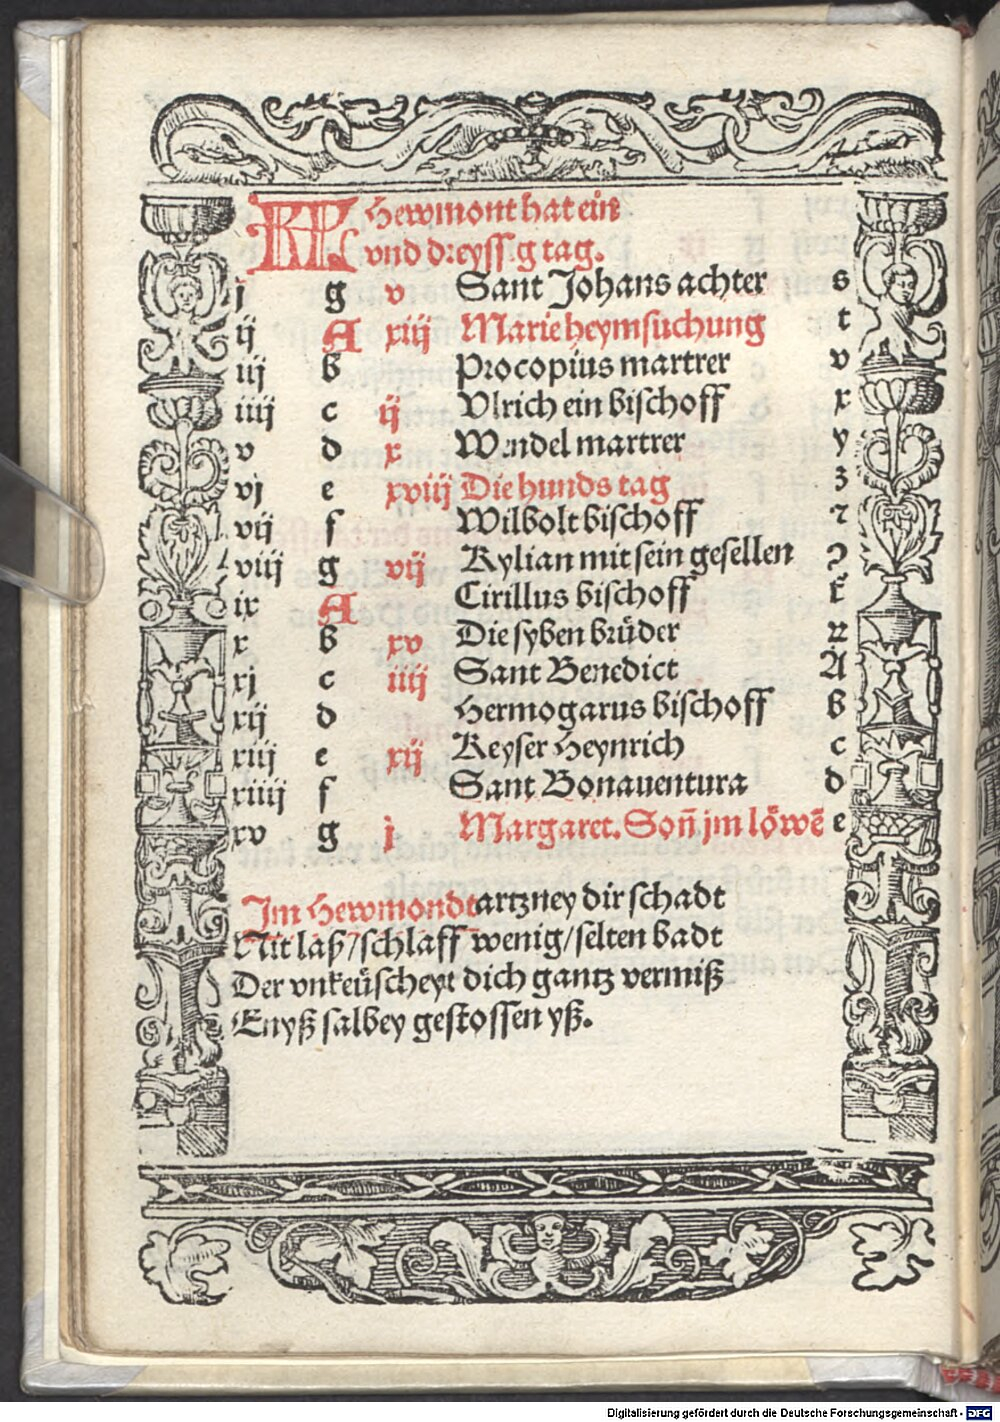 KL Hewmont hat ein
vnd dreyssig tag.
j g v Sant Johans achter s
ij A xiij Marie heymsuchung t
iij b Procopius martrer v
iiij c ij Vlrich ein bischoff x
v d x Wendel martrer y
vj e xviij Die hunds tag z
vij f Wilbolt bischoff ꝛ
viij g vij Kylian mit sein gesellen ?
ix A Cirillus bischoff
x b xv Die syben brüder
xj c iiij Sant Benedict A
xij d Hermogarus bischoff B
xiij e xij Keyser Heynrich c
xiiij f Sant Bonauentura d
xv g j Margaret. Son̄ jm löwē e
Im Hewmondt artzney dir schadt
Nit laß/schlaff wenig/selten badt
Der vnkeüscheyt dich gantz vermiß
Enyß salbey gestossen yß.
Digitalisierung gefördert durch die Deutsche Forschungsgemeinschaft - DFG